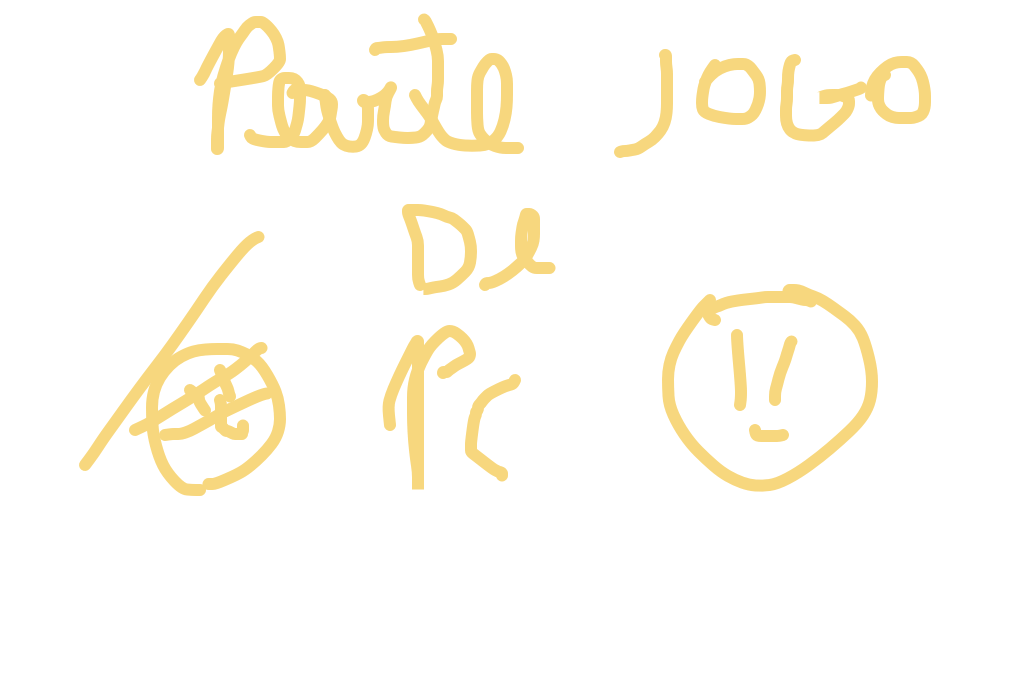 Parte JOGO
De
PC